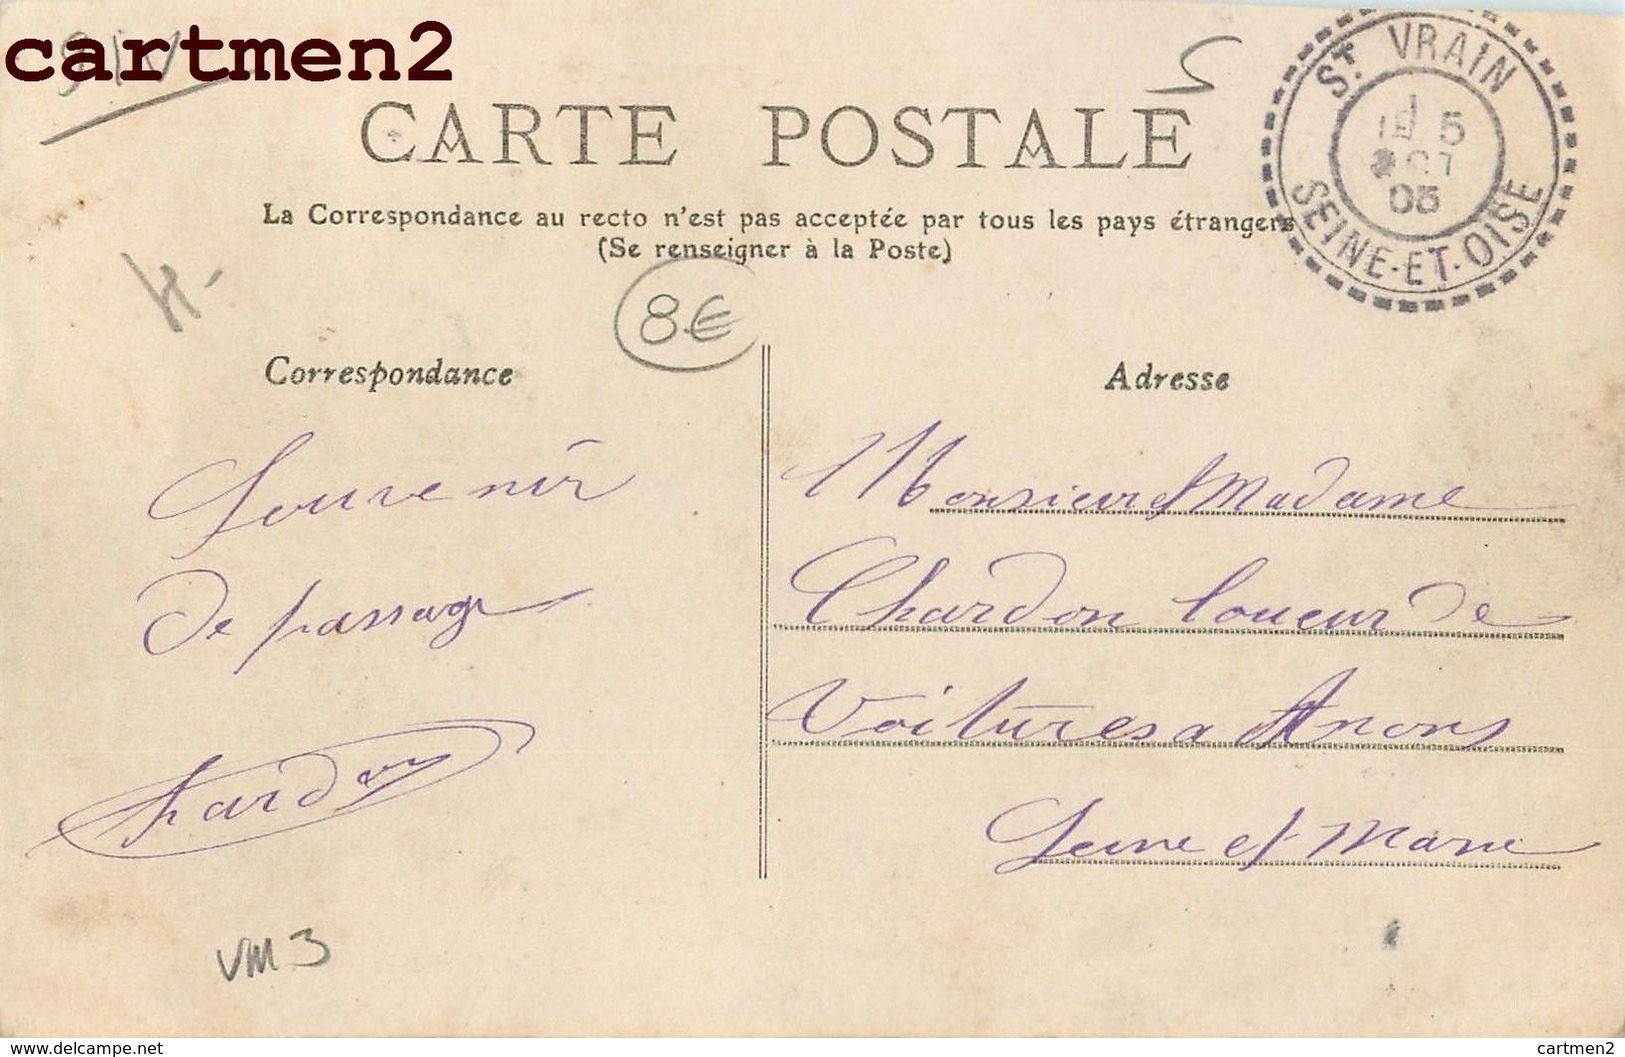 cartmen2
CARTE POSTALE
La Correspondance au recto n'est pas acceptée par tous les pays étrangers
(Se renseigner à la Poste)
ST. VRAIN
5
SEINE-ET-OISE
8€
Correspondance
Souvenir
de passage
Chardon
VM3
Adresse
Monsieur et Madame
Chardon loueur de
Voitures a
Seine et Marne
Visitez aussi delcampe.net
cartmen2